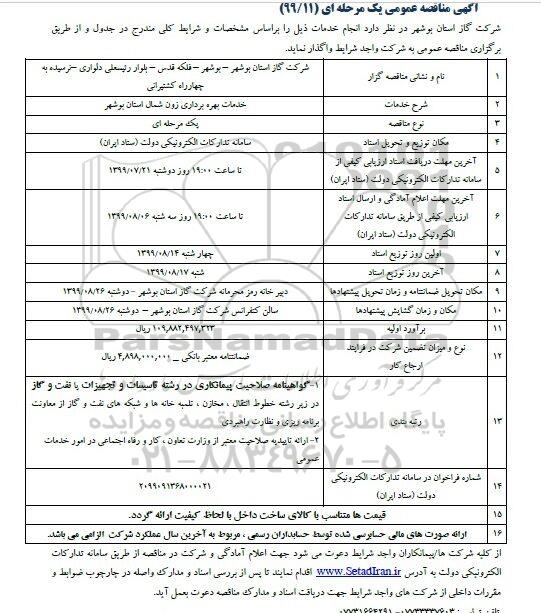 آگهی مناقصه عمومی یک مرحله ای (99/11)
شرکت گاز استان بوشهر در نظر دارد انجام خدمات ذیل را براساس مشخصات و شرایط کلی مندرج در جدول و از طریق
برگزاری مناقصه عمومی به شرکت واجد شرایط واگذار نماید.
۱ نام و نشانی مناقصه گزار شرکت گاز استان بوشهر – بوشهر – فلکه قدس – بلوار رئیسعلی دلواری –نرسیده به
چهارراه کشتیرانی
۲ شرح خدمات خدمات بهره برداری زون شمال استان بوشهر
۳ نوع مناقصه یک مرحله ای
۴ مکان توزیع و تحویل اسناد سامانه تدارکات الکترونیکی دولت (ستاد ایران)
۵ آخرین مهلت دریافت اسناد ارزیابی کیفی از
سامانه تدارکات الکترونیکی دولت (ستاد ایران) تا ساعت ۱۹:۰۰ روز دوشنبه ۱۳۹۹/۰۷/۲۱
۶ آخرین مهلت اعلام آمادگی و ارسال اسناد
ارزیابی کیفی از طریق سامانه تدارکات
الکترونیکی دولت (ستاد ایران) تا ساعت ۱۹:۰۰ روز سه شنبه ۱۳۹۹/۰۸/۰۶
۷ اولین روز توزیع اسناد چهار شنبه ۱۳۹۹/۰۸/۱۴
۸ آخرین روز توزیع اسناد شنبه ۱۳۹۹/۰۸/۱۷
۹ مکان تحویل ضمانتنامه و زمان تحویل پیشنهادها دبیر خانه رمز محرمانه شرکت گاز استان بوشهر – دوشنبه ۱۳۹۹/۰۸/۲۶
۱۰ مکان و زمان گشایش پیشنهادها سالن کنفرانس شرکت گاز استان بوشهر – دوشنبه ۱۳۹۹/۰۸/۲۶
۱۱ برآورد اولیه ۱۰۹,۸۸۲,۴۹۷,۳۲۳ ریال
۱۲ نوع و میزان تضمین شرکت در فرایند
ارجاع کار ضمانتنامه معتبر بانکی _ ۴,۸۹۸,۰۰۰,۰۰۰ ریال
۱۳ رتبه بندی ۱-گواهینامه صلاحیت پیمانکاری در رشته تاسیسات و تجهیزات یا نفت و گاز
در زیر رشته خطوط انتقال ، مخازن ، تلمبه خانه ها و شبکه های نفت و گاز از معاونت
برنامه ریزی و نظارت راهبردی
۲- ارائه تاییدیه صلاحیت معتبر از وزارت تعاون ، کار و رفاه اجتماعی در امور خدمات
عمومی
۱۴ شماره فراخوان در سامانه تدارکات الکترونیکی
دولت (ستاد ایران) ۲۰۹۹۰۹۱۳۶۸۰۰۰۰۲۱
۱۵ قیمت ها متناسب با کالای ساخت داخل با لحاظ کیفیت ارائه گردد.
۱۶ ارائه صورت های مالی حسابرسی شده توسط حسابداران رسمی ، مربوط به آخرین سال عملکرد شرکت الزامی می باشد.
از کلیه شرکت ها/پیمانکاران واجد شرایط دعوت می شود جهت اعلام آمادگی و شرکت در مناقصه از طریق سامانه تدارکات
الکترونیکی دولت به آدرس www.SetadIran.ir اقدام نمایند تا پس از بررسی اسناد و مدارک واصله در چارچوب ضوابط و
مقررات داخلی از شرکت های واجد شرایط جهت دریافت اسناد و مدارک مناقصه دعوت بعمل آید.
ParsNamadData
پایگاه اطلاع رسانی مناقصه و مزایده
۰۲۱-۸۸۳۴۹۶۷۰-۵